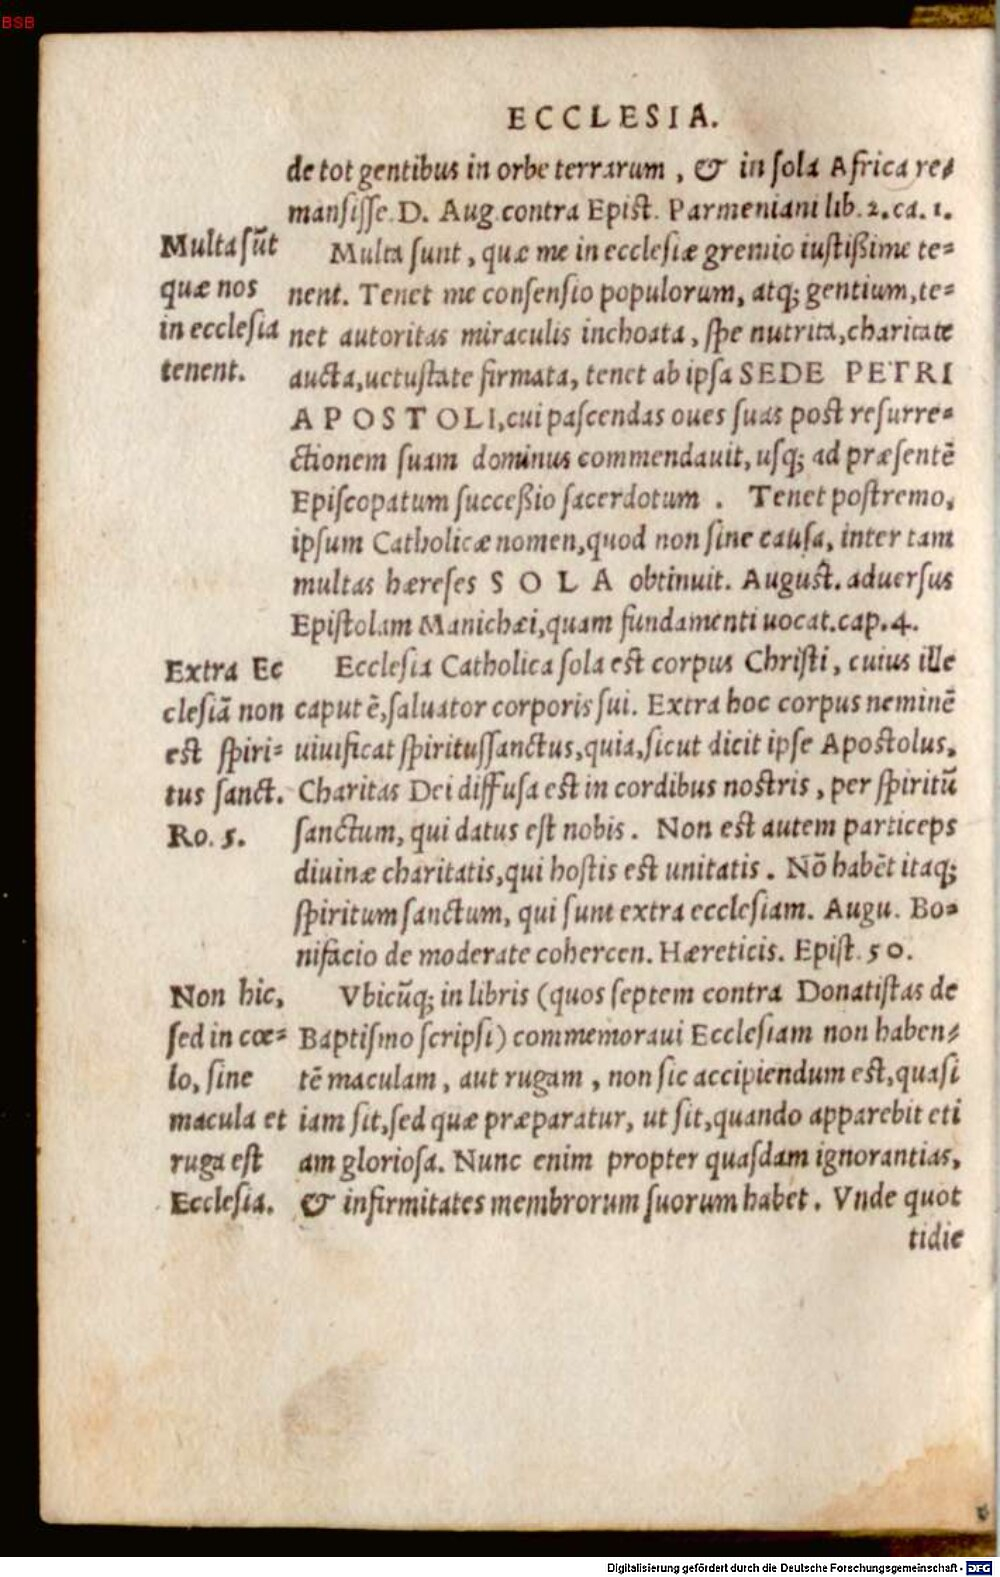 BSB
ECCLESIA.
de tot gentibus in orbe terrarum, & in sola Africa re-
mansisse. D. Aug. contra Epist. Parmeniani lib. 2. ca. 1.
Multa sūt
quæ nos
in ecclesia
tenent.
Multa sunt, quæ me in ecclesiæ gremio iustißime te-
nent. Tenet me consensio populorum, atq; gentium, te-
net autoritas miraculis inchoata, spe nutrita, charitate
aucta, uetustate firmata, tenet ab ipsa SEDE PETRI
APOSTOLI, cui pascendas oues suas post resurre-
ctionem suam dominus commendauit, usq; ad præsentē
Episcopatum succeßio sacerdotum. Tenet postremo,
ipsum Catholicæ nomen, quod non sine causa, inter tam
multas hæreses SOLA obtinuit. August. aduersus
Epistolam Manichæi, quam fundamenti uocat. cap. 4.
Extra Ec
clesiā non
est spiri-
tus sanct.
Ro. 5.
Ecclesia Catholica sola est corpus Christi, cuius ille
caput ē, saluator corporis sui. Extra hoc corpus neminē
uiuificat spiritussanctus, quia, sicut dicit ipse Apostolus,
Charitas Dei diffusa est in cordibus nostris, per spiritū
sanctum, qui datus est nobis. Non est autem particeps
diuinæ charitatis, qui hostis est unitatis. Nō habēt itaq;
spiritum sanctum, qui sunt extra ecclesiam. Augu. Bo-
nifacio de moderate cohercen. Hæreticis. Epist. 50.
Non hic,
sed in cœ-
lo, sine
macula et
ruga est
Ecclesia.
Vbicūq; in libris (quos septem contra Donatistas de
Baptismo scripsi) commemoraui Ecclesiam non haben-
tē maculam, aut rugam, non sic accipiendum est, quasi
iam sit, sed quæ præparatur, ut sit, quando apparebit eti
am gloriosa. Nunc enim propter quasdam ignorantias,
& infirmitates membrorum suorum habet. Vnde quot
tidie
Digitalisierung gefördert durch die Deutsche Forschungsgemeinschaft - DFG